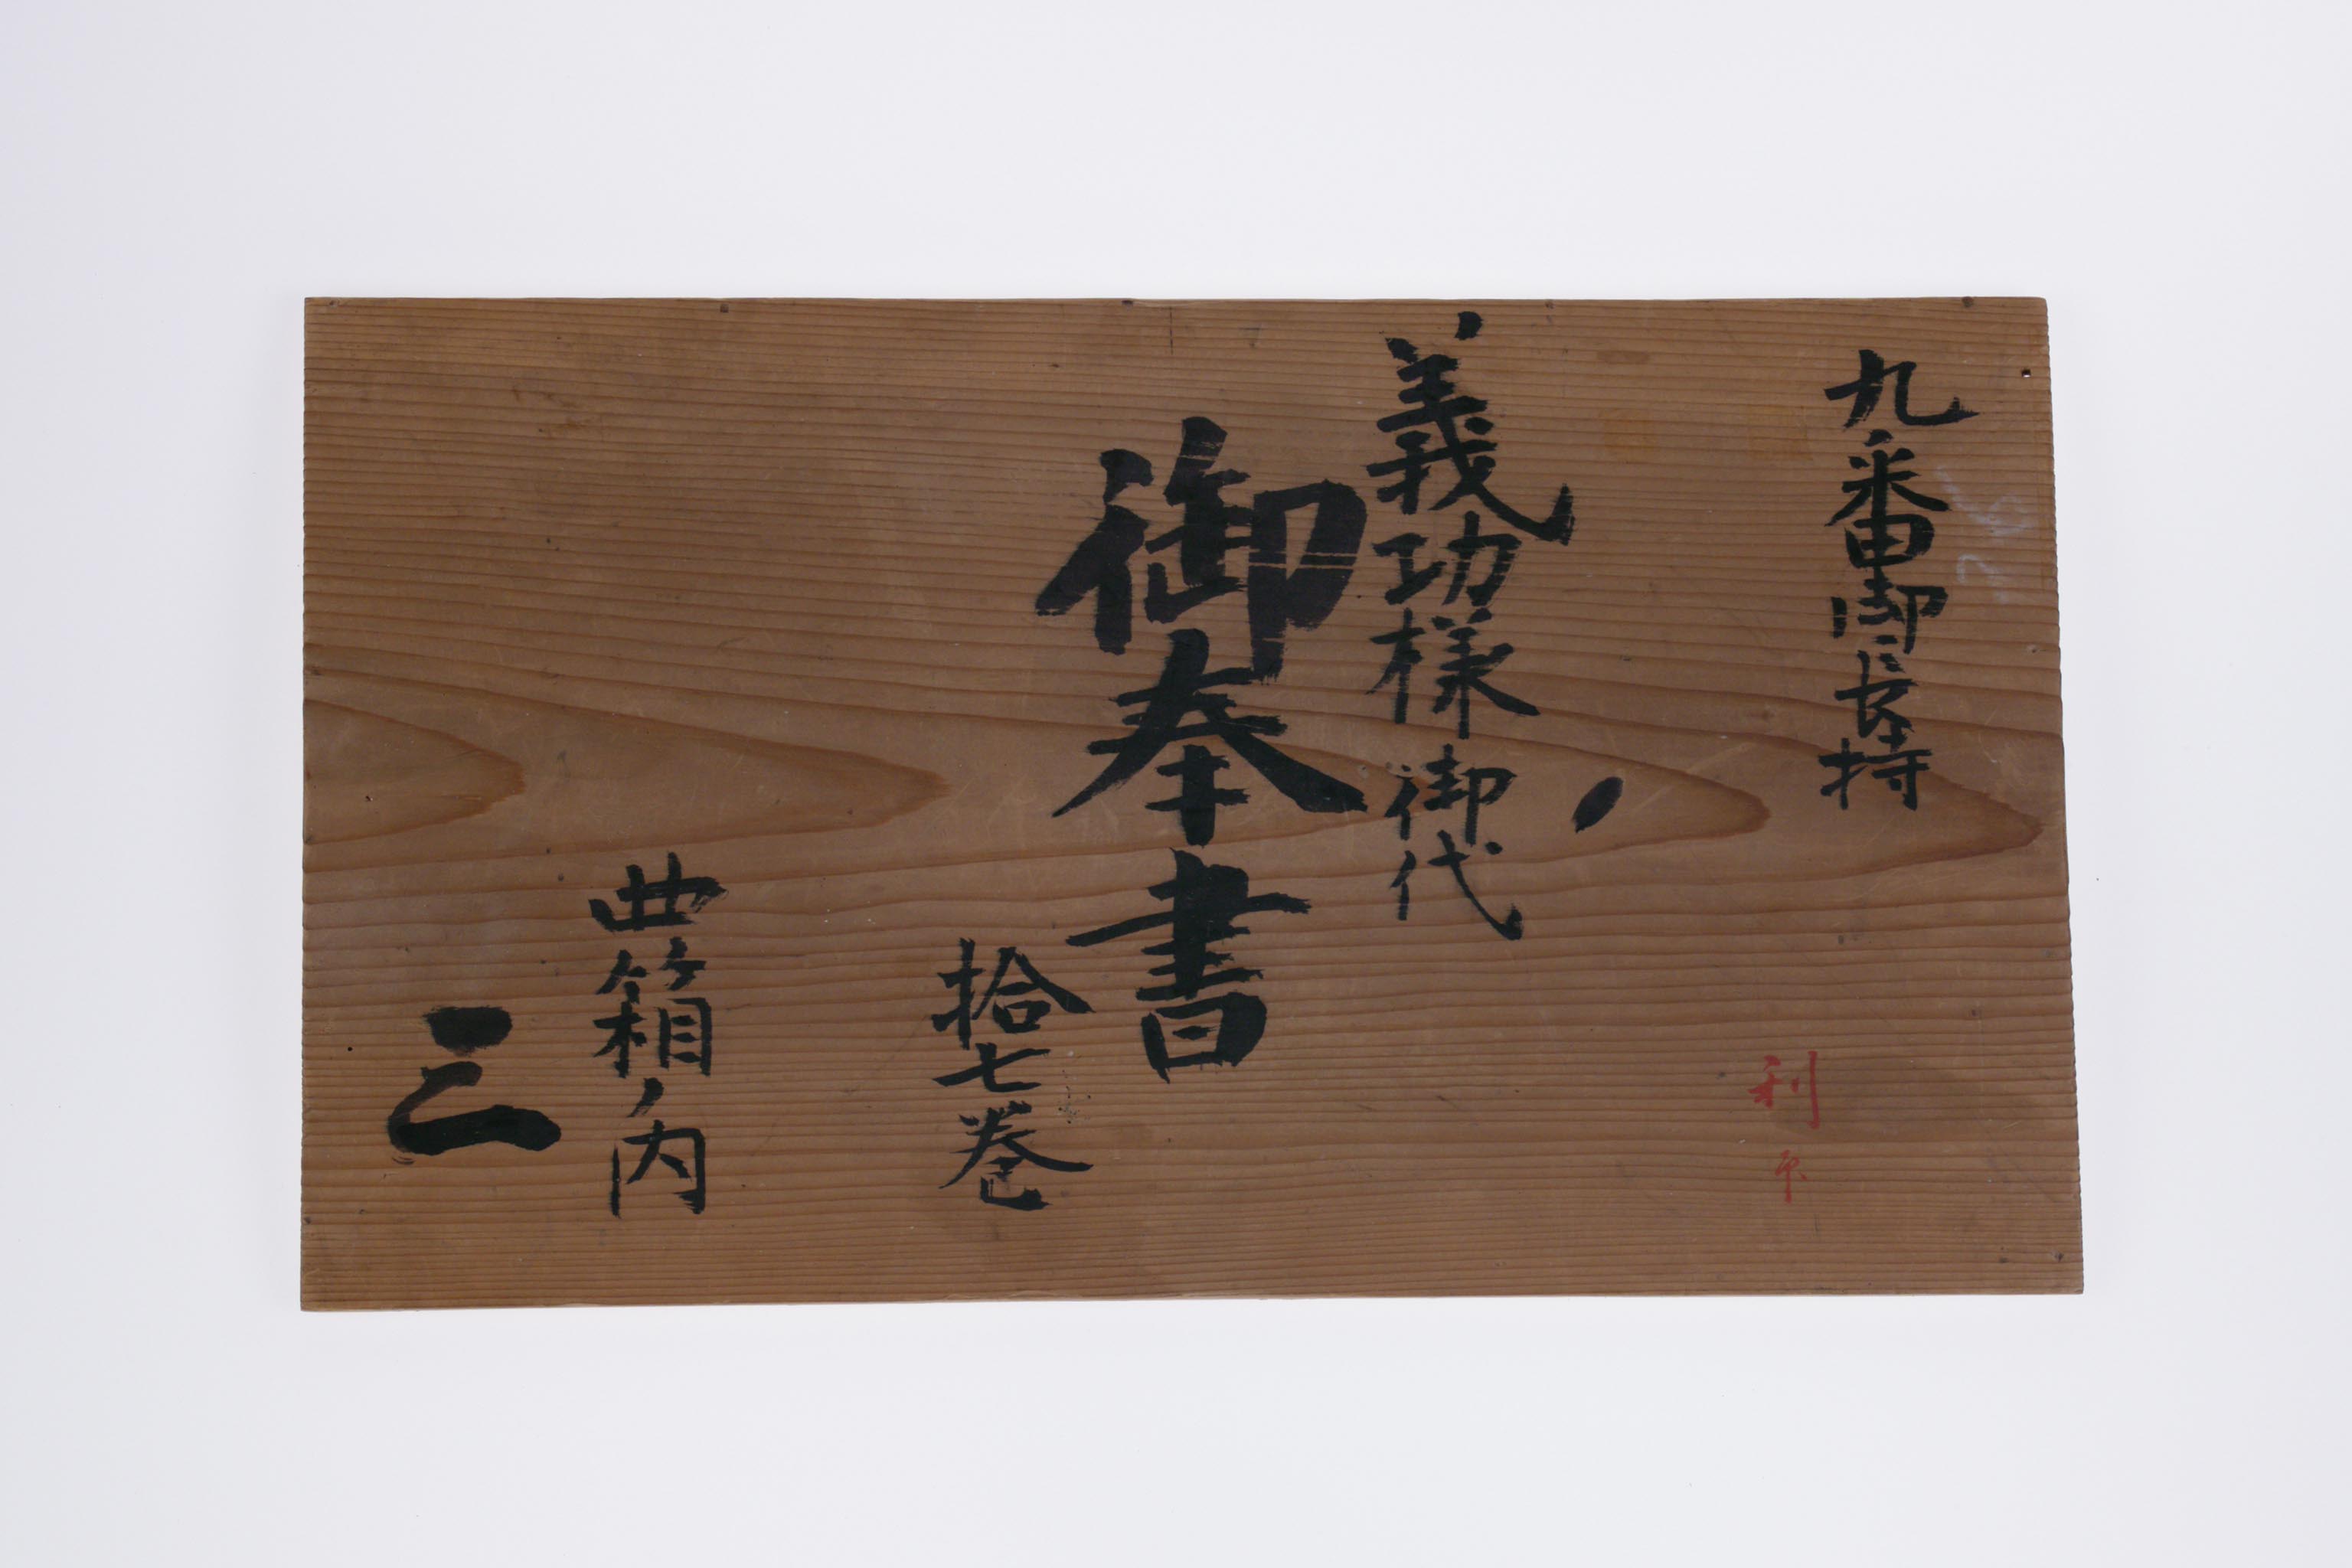 九番御長持
利
義功様御代
御奉書
拾七巻
曲箱ノ内
三